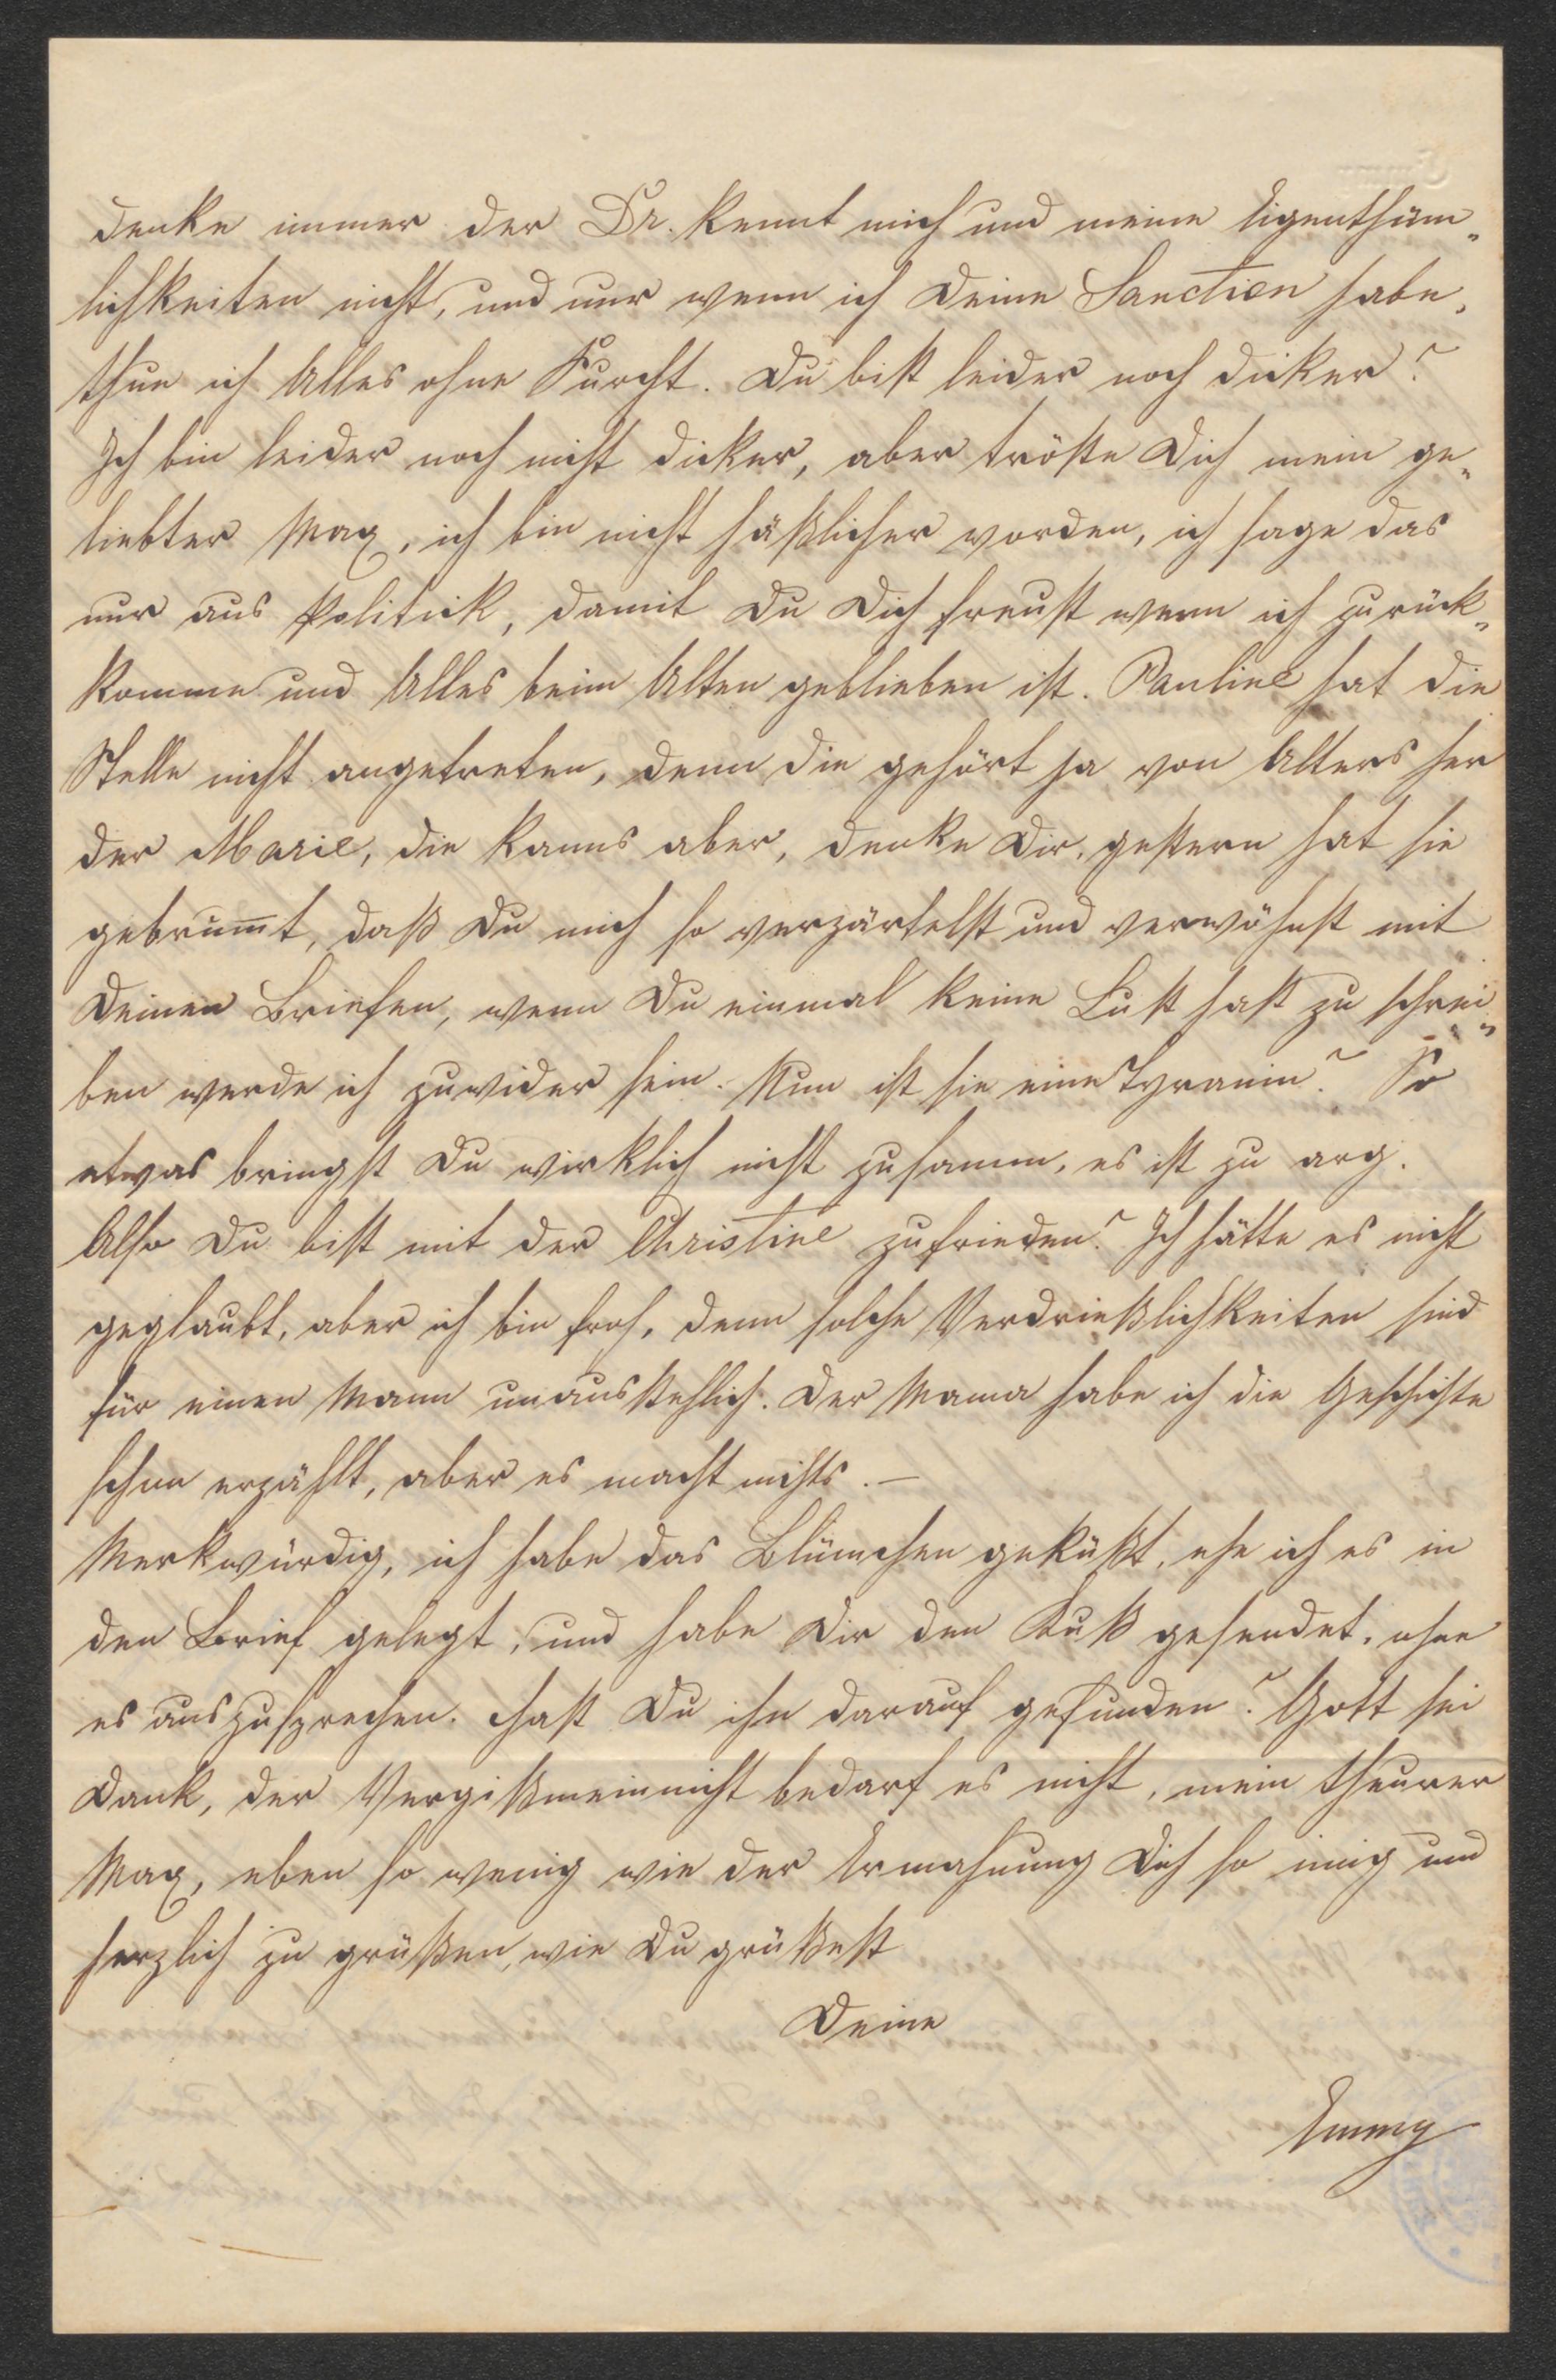 denke immer der Dr. kennt mich und meine Eigenthüm„
lichkeiten nicht, und nur wenn ich Deine Sanction habe,
thue ich Alles ohne Furcht. Du bist leider noch dicker?
Ich bin leider noch nicht dicker, aber tröste Dich mein ge„
liebter Max, ich bin nicht häßlicher worden, ich sage das
nur aus Politick, damit Du Dich freust wenn ich zurück„
komme und Alles beim Alten geblieben ist. Pauline hat die
Stelle nicht angetreten, denn die gehört ja von Alters her
der Marie, die kanns aber, denke Dir, gestern hat sie
gebrum̅t, daß Du mich so verzärtelst und verwöhnst mit
Deinen Briefen, wenn Du einmal keine Lust hast zu schrei„
ben werde ich zuwider sein. Nun ist sie eine Tyranin? So
etwas bringst Du wirklich nicht zusamm, es ist zu arg.
Also Du bist mit der Christine zufrieden? Ich hätte es nicht
geglaubt, aber ich bin froh, denn solche Verdrießlichkeiten sind
für einen Mann unausstehlich. Der Mama habe ich die Geschichte
schon erzählt, aber es macht nichts. –
Merkwürdig, ich habe das Blümchen geküßt, ehe ich es in
den Brief gelegt, und habe Dir den Kuß gesendet, ohne
es auszusprechen. Hast Du ihn darauf gefunden? Gott sei
Dank, der Vergißmeinnicht bedarf es nicht, mein theurer
Max, eben so wenig wie der Ermahnung Dich so innig und
herzlich zu grüßen, wie Du grüßest
Deine
Emmy